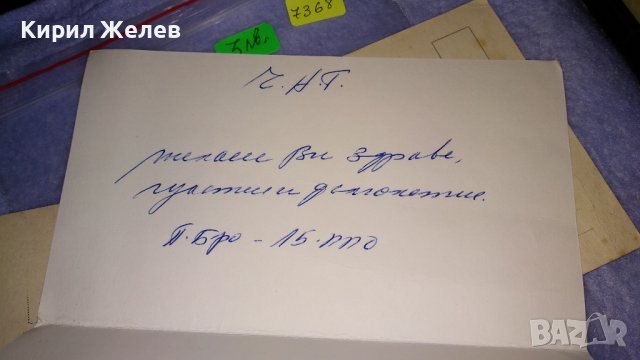 Кирил Желев
7368
5лв.
Ч.Н.Г.
желаем Ви здраве,
щастие и дълголетие.
П.Бро - 15. ППО
BAZAR